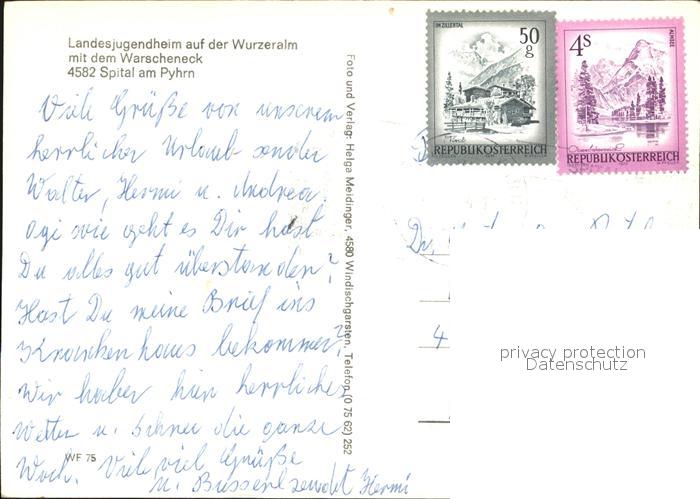 Landesjugendheim auf der Wurzeralm
mit dem Warscheneck
4582 Spital am Pyhrn
Viele Grüße von unserem
herrlichen Urlaub sendet
Walter, Hermi u. Andrea.
ogi wie geht es Dir hast
Du alles gut überstanden?
Hast Du meine Brief ins
Krankenhaus bekommen?
Wir haben hier herrliches
Wetter u. Schnee die ganze
Woch. Viele viel Grüße
u. Busserl sendet Hermi
WF 75
Foto und Verlag: Helga Meidinger, 4580 Windischgarsten, Telefon (0 75 62) 252
IM ZILLERTAL
50
g
Tirol
REPUBLIK ÖSTERREICH
4S
ALMSEE
Oberösterreich
REPUBLIK ÖSTERREICH
4
privacy protection
Datenschutz